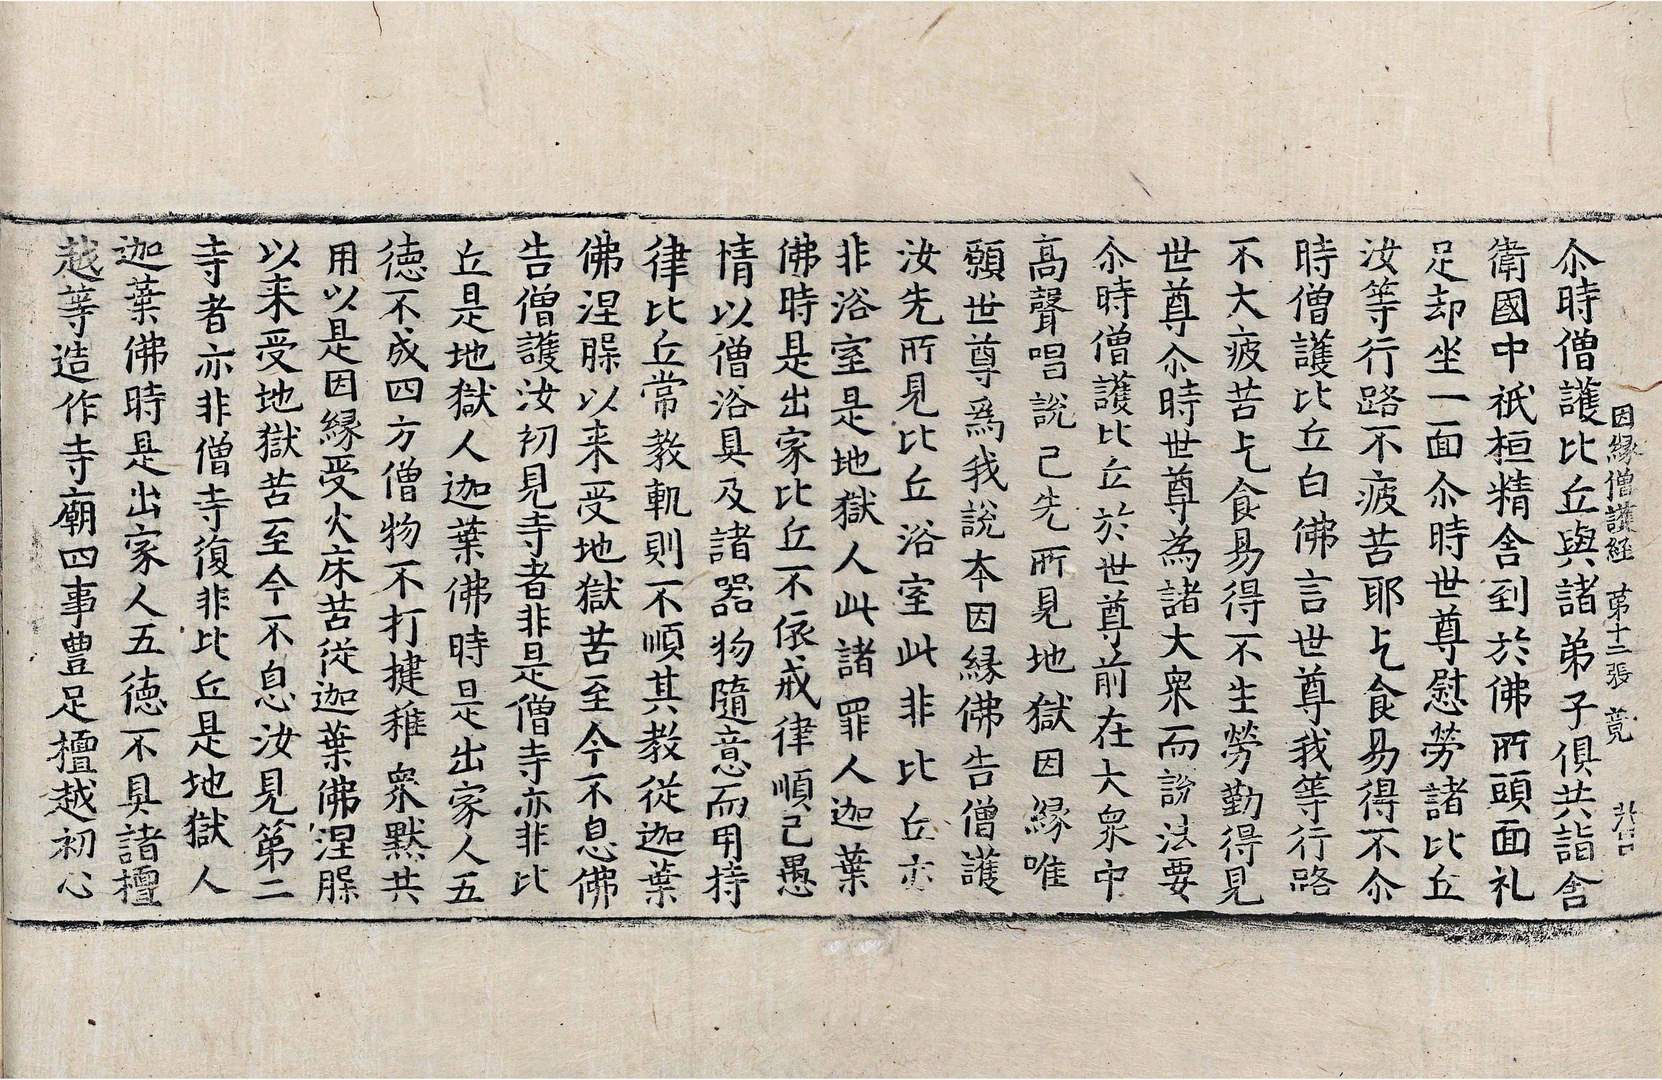 因縁僧護経 苐十二張 竟
尒時僧護比丘與諸弟子俱共詣舎
衛國中祇桓精舎到於佛所頭面礼
足却坐一面尒時世尊慰勞諸比丘
汝等行路不疲苦耶乞食易得不尒
時僧護比丘白佛言世尊我等行路
不大疲苦乞食易得不生勞勤得見
世尊尒時世尊為諸大衆而說法要
尒時僧護比丘於世尊前在大衆中
高聲唱說己先所見地獄因縁唯
願世尊爲我說本因縁佛告僧護
汝先所見比丘浴室此非比丘亦
非浴室是地獄人此諸罪人迦葉
佛時是出家比丘不依戒律順己愚
情以僧浴具及諸器物隨意而用持
律比丘常教軌則不順其教從迦葉
佛涅槃以来受地獄苦至今不息佛
告僧護汝初見寺者非是僧寺亦非比
丘是地獄人迦葉佛時是出家人五
徳不成四方僧物不打揵稚衆默共
用以是因縁受火床苦從迦葉佛涅槃
以来受地獄苦至今不息汝見第二
寺者亦非僧寺復非比丘是地獄人
迦葉佛時是出家人五徳不具諸檀
越䓁造作寺廟四事豊足檀越初心